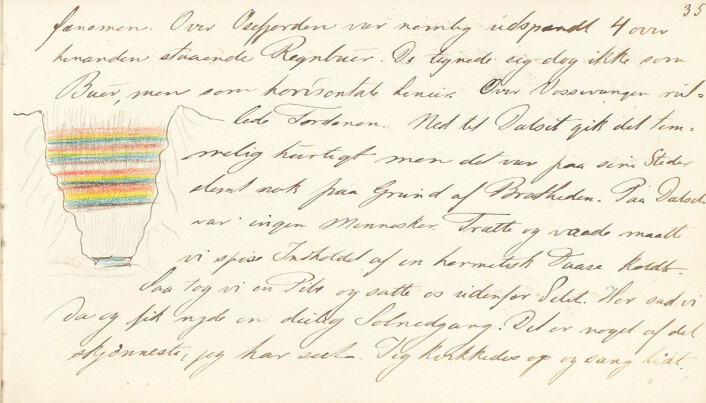 35
fænomen. Over Osefjorden var nemlig udspendt 4 over
hinanden staaende Regnbuer. De tegnede sig dog ikke som
Buer, men som horisontale Linier. Over Vossevangen rul=
lede Tordenen. Ned til Dalsæt gik det tem=
melig hurtigt men det var paa sine Steder
slemt nok paa Grund af Bratheden. Paa Dalsæt
var ingen Mennesker. Trætte og vaade maatte
vi spise Indholdet af en hermetisk Daase koldt.
Saa tog vi en Pibe og satte os udenfor Selet. Her sad vi
da og fik nyde en deilig Solnedgang. Det er noget af det
skjønneste, jeg har seet. Jeg kvikkedes op og sang lidt.